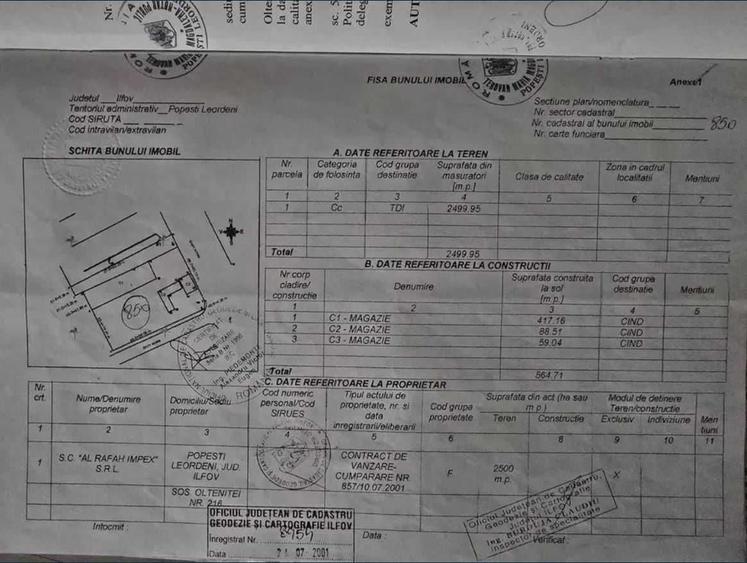 Nr.
sedi
cum
Olte
la da
calit
anex
sc. 5
Polit
deleg
exem
AUT
FISA BUNULUI IMOBIL
Anexa1
Judetul ___ Ilfov
Teritoriul administrativ__Popesti Leordeni
Cod SIRUTA
Cod intravilan/extravilan
Sectiune plan/nomenclatura
Nr. sector cadastral
Nr. cadastral al bunului imobil 850
Nr. carte funciara
SCHITA BUNULUI IMOBIL
850
A. DATE REFERITOARE LA TEREN
Nr. parcela Categoria de folosinta Cod grupa destinatie Suprafata din masuratori [m.p.] Clasa de calitate Zona in cadrul localitatii Mentiuni
1 2 3 4 5 6 7
1 Cc TDI 2499.95
Total 2499.95
B. DATE REFERITOARE LA CONSTRUCTII
Nr.corp cladire/ constructie Denumire Suprafata construita la sol [m.p.] Cod grupa destinatie Mentiuni
1 2 3 4 5
1 C1 - MAGAZIE 417.16 CIND
2 C2 - MAGAZIE 88.51 CIND
3 C3 - MAGAZIE 59.04 CIND
Total 564.71
C. DATE REFERITOARE LA PROPRIETAR
Nr. crt. Nume/Denumire proprietar Domiciliu/Sediu proprietar Cod numeric personal/Cod SIRUES Tipul actului de proprietate, nr. si data inregistrarii/eliberarii Cod grupa proprietate Suprafata din act (ha sau m.p.) Modul de detinere Teren/constructie Men tiuni
Teren Constructie Exclusiv Indiviziune
1 2 3 4 5 6 8 9 10 11
1 S.C. "AL RAFAH IMPEX" S.R.L. POPESTI LEORDENI, JUD. ILFOV CONTRACT DE VANZARE-CUMPARARE NR. 857/10.07.2001 F 2500 m.p. x
SOS. OLTENITEI NR. 216
Intocmit :
OFICIUL JUDETEAN DE CADASTRU
GEODEZIE ȘI CARTOGRAFIE ILFOV
Inregistrat Nr. 8954
Data 21 07 2001
Data :
Oficiul Judetean de Cadastru,
Geodezie si Cartografie
Judetul ILFOV
Inspector de specialitate
Verificat :